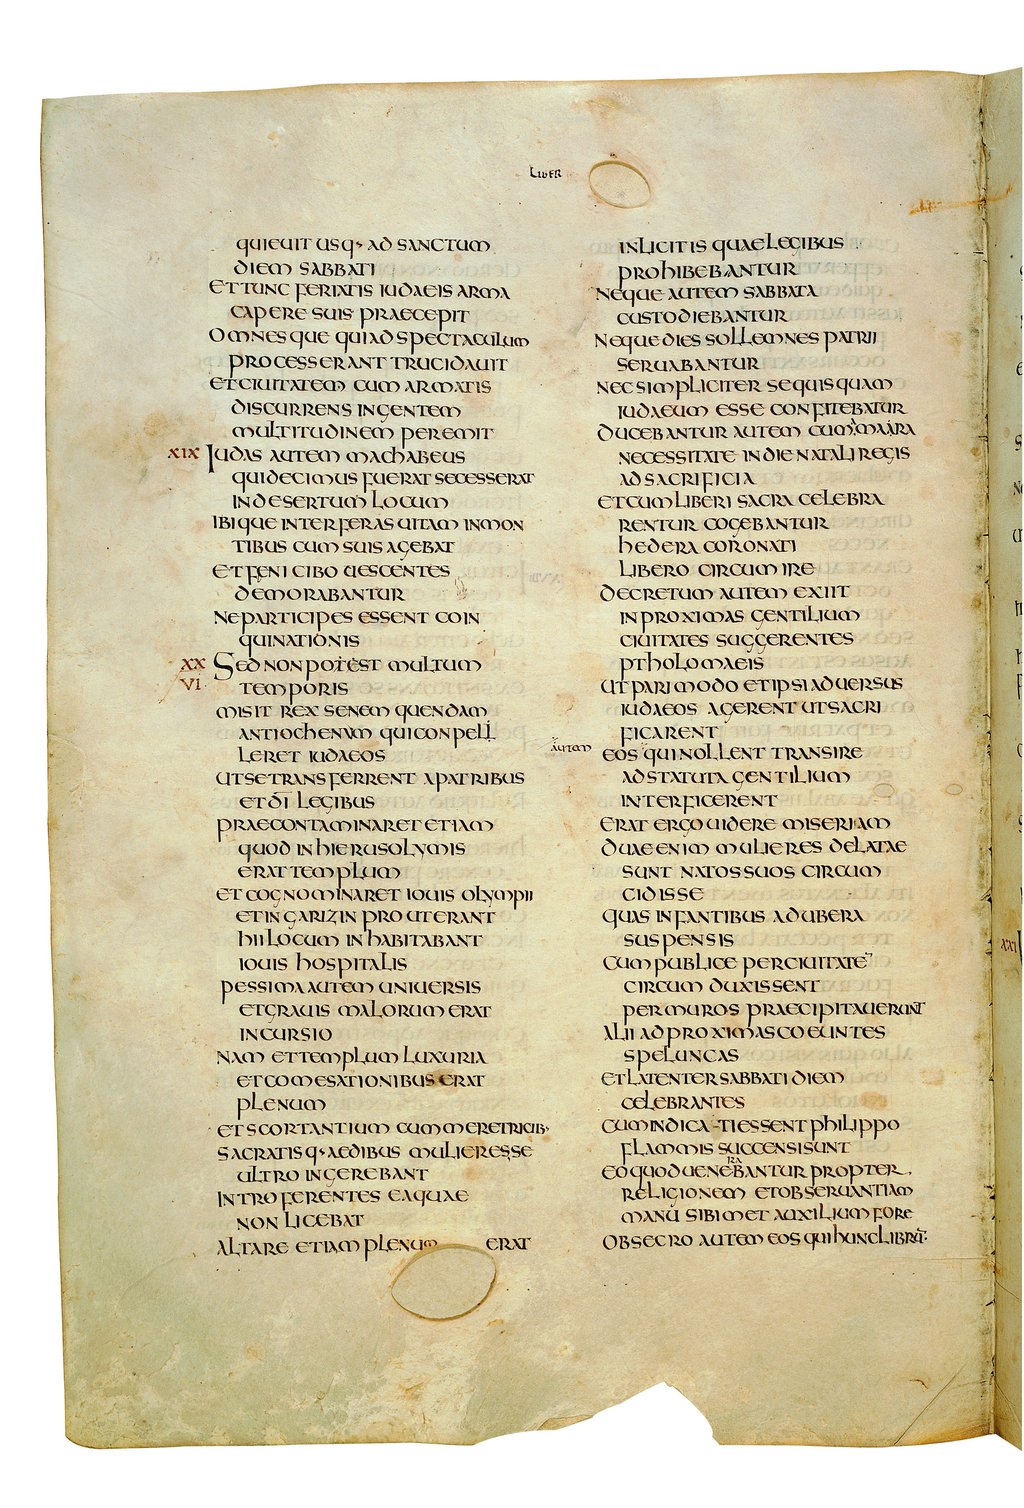 LIBER
QUIEUIT USQ· AD SANCTUM
DIEM SABBATI
ET TUNC FERIATIS IUDAEIS ARMA
CAPERE SUIS PRAECEPIT
OMNESQUE QUI AD SPECTACULUM
PROCESSERANT TRUCIDAUIT
ET CIUITATEM CUM ARMATIS
DISCURRENS INGENTEM
MULTITUDINEM PEREMIT
XIX IUDAS AUTEM MACHABEUS
QUI DECIMUS FUERAT SECESSERAT
IN DESERTUM LOCUM
IBIQUE INTER FERAS UITAM IN MON
TIBUS CUM SUIS AGEBAT
ET FENI CIBO UESCENTES
DEMORABANTUR
NE PARTICIPES ESSENT COIN
QUINATIONIS
XX SED NON POTEST MULTUM
VI TEMPORIS
MISIT REX SENEM QUENDAM
ANTIOCHENUM QUI CONPELL
LERET IUDAEOS
UT SE TRANSFERRENT A PATRIBUS
ET DĪ LEGIBUS
PRAECONTAMINARET ETIAM
QUOD IN HIERUSOLYMIS
ERAT TEMPLUM
ET COGNOMINARET IOUIS OLYMPII
ET IN GARIZIN PROUT ERANT
HII LOCUM INHABITABANT
IOUIS HOSPITALIS
PESSIMA AUTEM UNIUERSIS
ET GRAUIS MALORUM ERAT
INCURSIO
NAM ET TEMPLUM LUXURIA
ET COMESATIONIBUS ERAT
PLENUM
ET SCORTANTIUM CUM MERETRICIB·
SACRATISQ· AEDIBUS MULIERES SE
ULTRO INGEREBANT
INTRO FERENTES EA QUAE
NON LICEBAT
ALTARE ETIAM PLENUM ERAT
INLICITIS QUAE LEGIBUS
PROHIBEBANTUR
NEQUE AUTEM SABBATA
CUSTODIEBANTUR
NEQUE DIES SOLLEMNES PATRII
SERUABANTUR
NEC SIMPLICITER SE QUISQUAM
IUDAEUM ESSE CONFITEBATUR
DUCEBANTUR AUTEM CUM AMARA
NECESSITATE IN DIE NATALI REGIS
AD SACRIFICIA
ET CUM LIBERI SACRA CELEBRA
RENTUR COGEBANTUR
HEDERA CORONATI
LIBERO CIRCUMIRE
DECRETUM AUTEM EXIIT
IN PROXIMAS GENTILIUM
CIUITATES SUGGERENTES
PTHOLOMAEIS
UT PARI MODO ET IPSI ADUERSUS
IUDAEOS AGERENT UT SACRI
FICARENT
AUTEM
EOS QUI NOLLENT TRANSIRE
AD STATUTA GENTILIUM
INTERFICERENT
ERAT ERGO UIDERE MISERIAM
DUAE ENIM MULIERES DELATAE
SUNT NATOS SUOS CIRCUM
CIDISSE
QUAS INFANTIBUS AD UBERA
SUSPENSIS
CUM PUBLICE PER CIUITATE¯
CIRCUM DUXISSENT
PER MUROS PRAECIPITAUERUNT
ALII AD PROXIMAS COEUNTES
SPELUNCAS
ET LATENTER SABBATI DIEM
CELEBRANTES
CUM INDICATI ESSENT PHILIPPO
FLAMMIS SUCCENSI SUNT
RA
EO QUOD UENEBANTUR PROPTER
RELIGIONEM ET OBSERUANTIAM
MANU SIBIMET AUXILIUM FORE
OBSECRO AUTEM EOS QUI HUNC LIBRŪ·
XXI